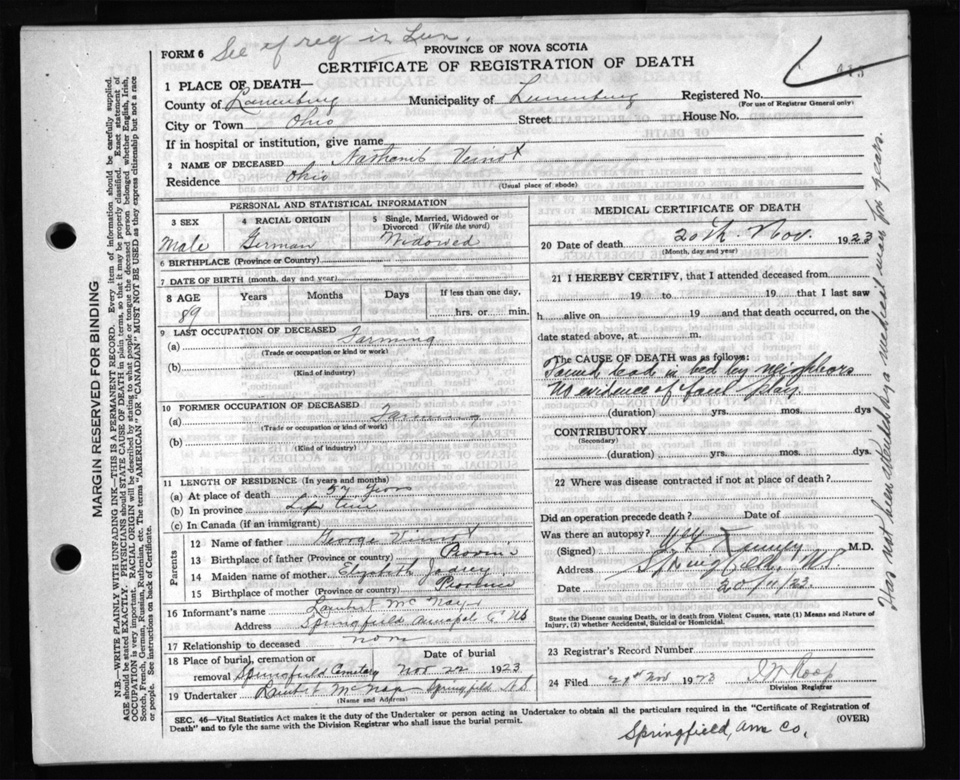 FORM 6 See of reg in Lun.
PROVINCE OF NOVA SCOTIA
CERTIFICATE OF REGISTRATION OF DEATH
1 PLACE OF DEATH—
County of Lunenburg Municipality of Lunenburg Registered No.
(For use of Registrar General only)
City or Town Ohio Street House No.
If in hospital or institution, give name
2 NAME OF DECEASED Veinot x
Residence Ohio
(Usual place of abode)
PERSONAL AND STATISTICAL INFORMATION
3 SEX 4 RACIAL ORIGIN 5 Single, Married, Widowed or Divorced (Write the word)
Male German Widowed
6 BIRTHPLACE (Province or Country)
7 DATE OF BIRTH (month, day and year)
8 AGE Years Months Days If less than one day,
89 hrs. or min.
9 LAST OCCUPATION OF DECEASED
(a) Farming
(Trade or occupation or kind or work)
(b)
(Kind of industry)
10 FORMER OCCUPATION OF DECEASED
(a) Farming
(Trade or occupation or kind of work)
(b)
(Kind of industry)
11 LENGTH OF RESIDENCE (In years and months)
(a) At place of death 52 years
(b) In province Life time
(c) In Canada (if an immigrant)
Parents
12 Name of father George Veinot x
13 Birthplace of father (Province or country) Province
14 Maiden name of mother Elizabeth
15 Birthplace of mother (Province or country) Province
16 Informant's name Lambert McNayr
Address Springfield Annapolis C NS
17 Relationship to deceased none
18 Place of burial, cremation or removal Springfield Cemetary
Date of burial Nov 22 1923
19 Undertaker Lambert McNayr Springfield NS
(Name and Address)
MEDICAL CERTIFICATE OF DEATH
20 Date of death 20th Nov. 1923
(Month, day and year)
21 I HEREBY CERTIFY, that I attended deceased from
19 to 19 that I last saw
h alive on 19 and that death occurred, on the
date stated above, at m.
The CAUSE OF DEATH was as follows:
Found dead in bed by neighbors
No evidence of foul play
(duration) yrs. mos. dys
CONTRIBUTORY
(Secondary)
(duration) yrs. mos. dys.
22 Where was disease contracted if not at place of death?
Did an operation precede death? Date of
Was there an autopsy?
(Signed) M.D.
Address Springfield, N.S.
Date 20/11/23
State the Disease causing Death, or in death from Violent Causes, state (1) Means and Nature of
Injury, (2) whether Accidental, Suicidal or Homicidal.
23 Registrar's Record Number
24 Filed 21st Nov 1923 Roop
Division Registrar
SEC. 46—Vital Statistics Act makes it the duty of the Undertaker or person acting as Undertaker to obtain all the particulars required in the "Certificate of Registration of
Death" and to fyle the same with the Division Registrar who shall issue the burial permit. (OVER)
Springfield, Ann Co.
Has not been attended by a medical man for years.
MARGIN RESERVED FOR BINDING
N.B.—WRITE PLAINLY WITH UNFADING INK—THIS IS A PERMANENT RECORD. Every item of information should be carefully supplied.
AGE should be stated EXACTLY. PHYSICIANS should STATE CAUSE OF DEATH in plain terms, so that it may be properly classified. Exact statement of
OCCUPATION is very important. RACIAL ORIGIN will be described by stating to what people or tongue the deceased person belonged whether English, Irish,
Scotch, French, German, Russian, Ruthenian, etc. The terms "AMERICAN" OR "CANADIAN" MUST NOT BE USED as they express citizenship but not a race
or people. See instructions on back of Certificate.